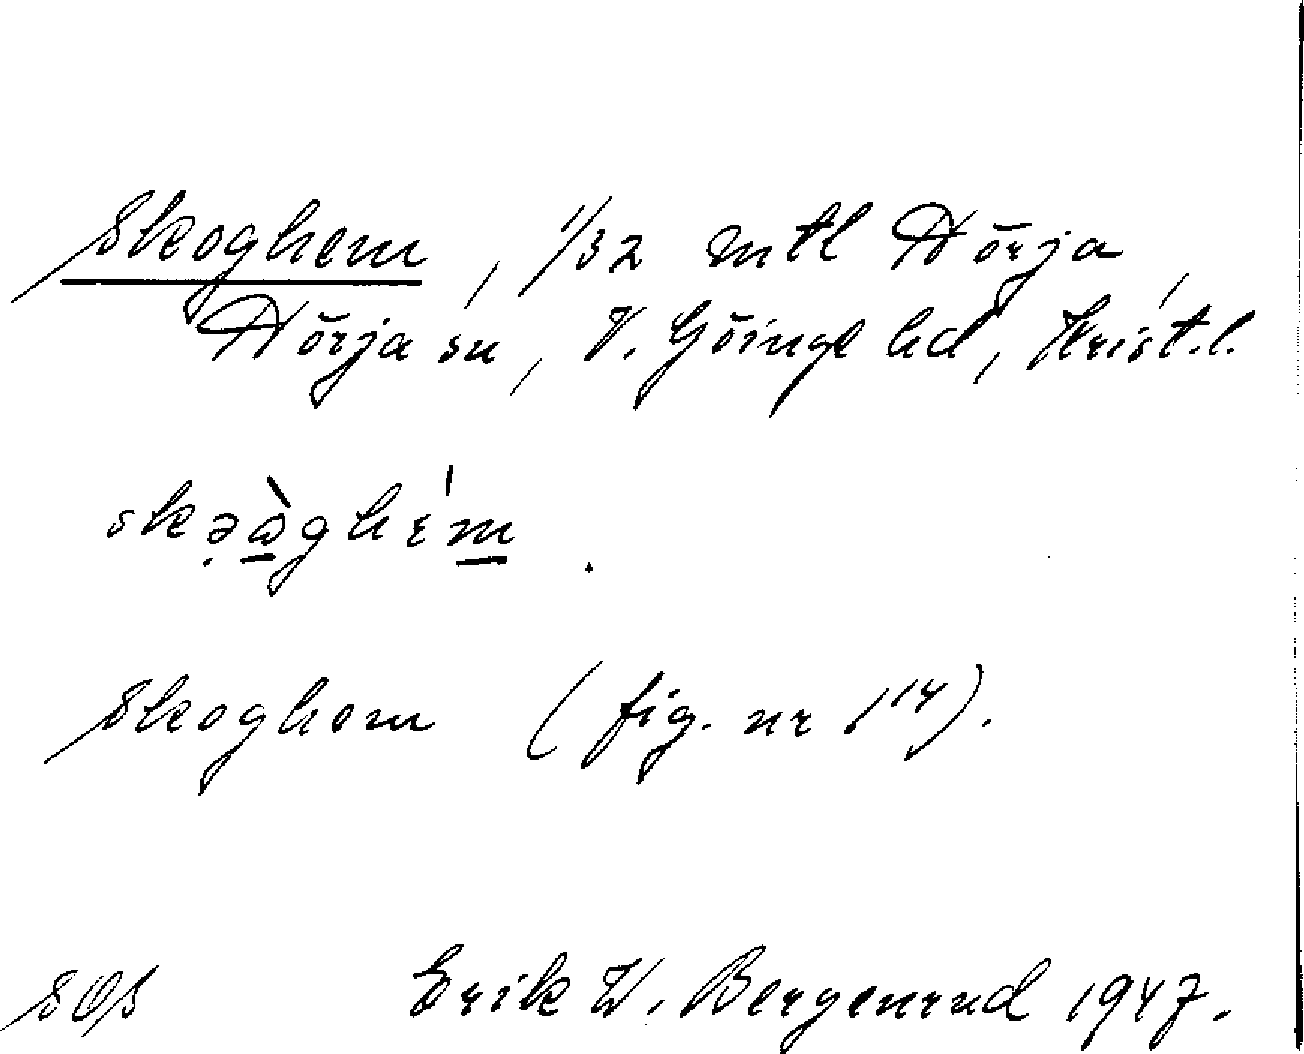 Skoghem, 1/32 mtl Nörja,
Nörja sn, V. Göinge hd, Krist.l.
skə̣àghɛ́m.
Skoghem (fig. nr 1¹⁴).
SOS Erik W. Bergenrud 1947.